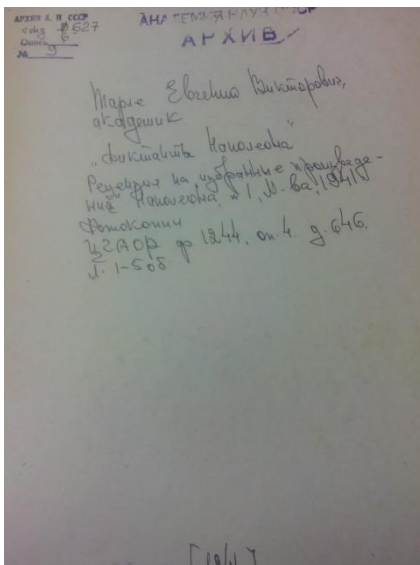 АРХИВ А. Н. СССР
фонд 627
Опись 6
№ 9
АКАДЕМИЯ НАУК СССР
АРХИВ
Тарле Евгений Викторович,
академик
„Диктанты Наполеона“
Рецензия на избранные произведе-
ния Наполеона, т. I, М-ва, 1941
Фотокопии
ЦГАОР ф 1244. оп. 4. д. 646.
Л. 1-5 об.